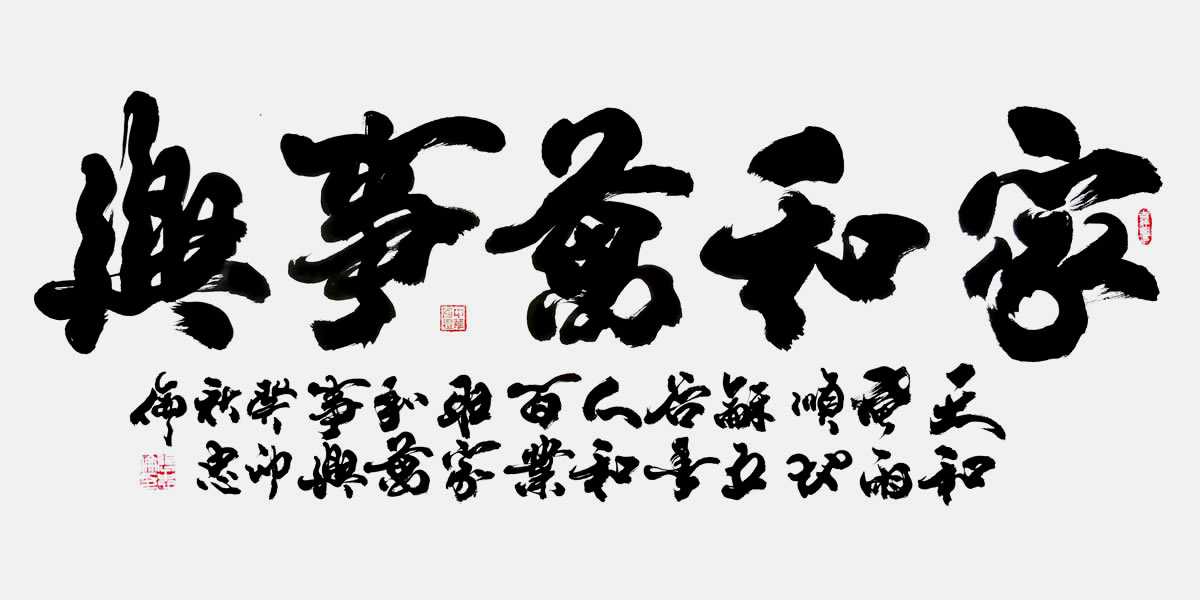 家和萬事興
天和
風雨
順地
穌五
谷豐
人和
百業
旺家
和萬
事興
癸卯
秋忠
倫